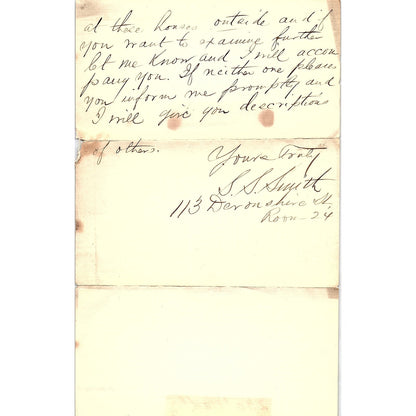 at these Houses outside and if
you want to examine further
let me know and I will accom
pany you. If neither one pleases
you inform me promptly and
I will give you descriptions
of others.
Yours Truly
S. S. Smith
113 Devonshire St,
Room-24